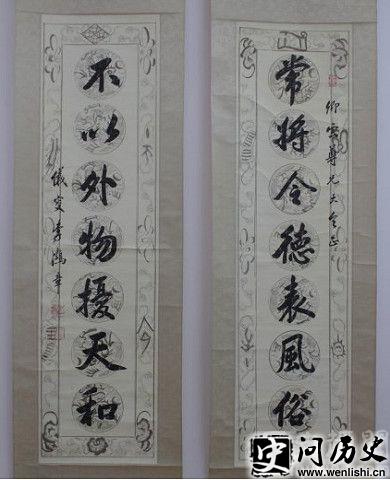 卿雲尊兄大人正
常將令德表風俗
不以外物擾天和
儀叟李鴻章
问历史
www.wenlishi.cn